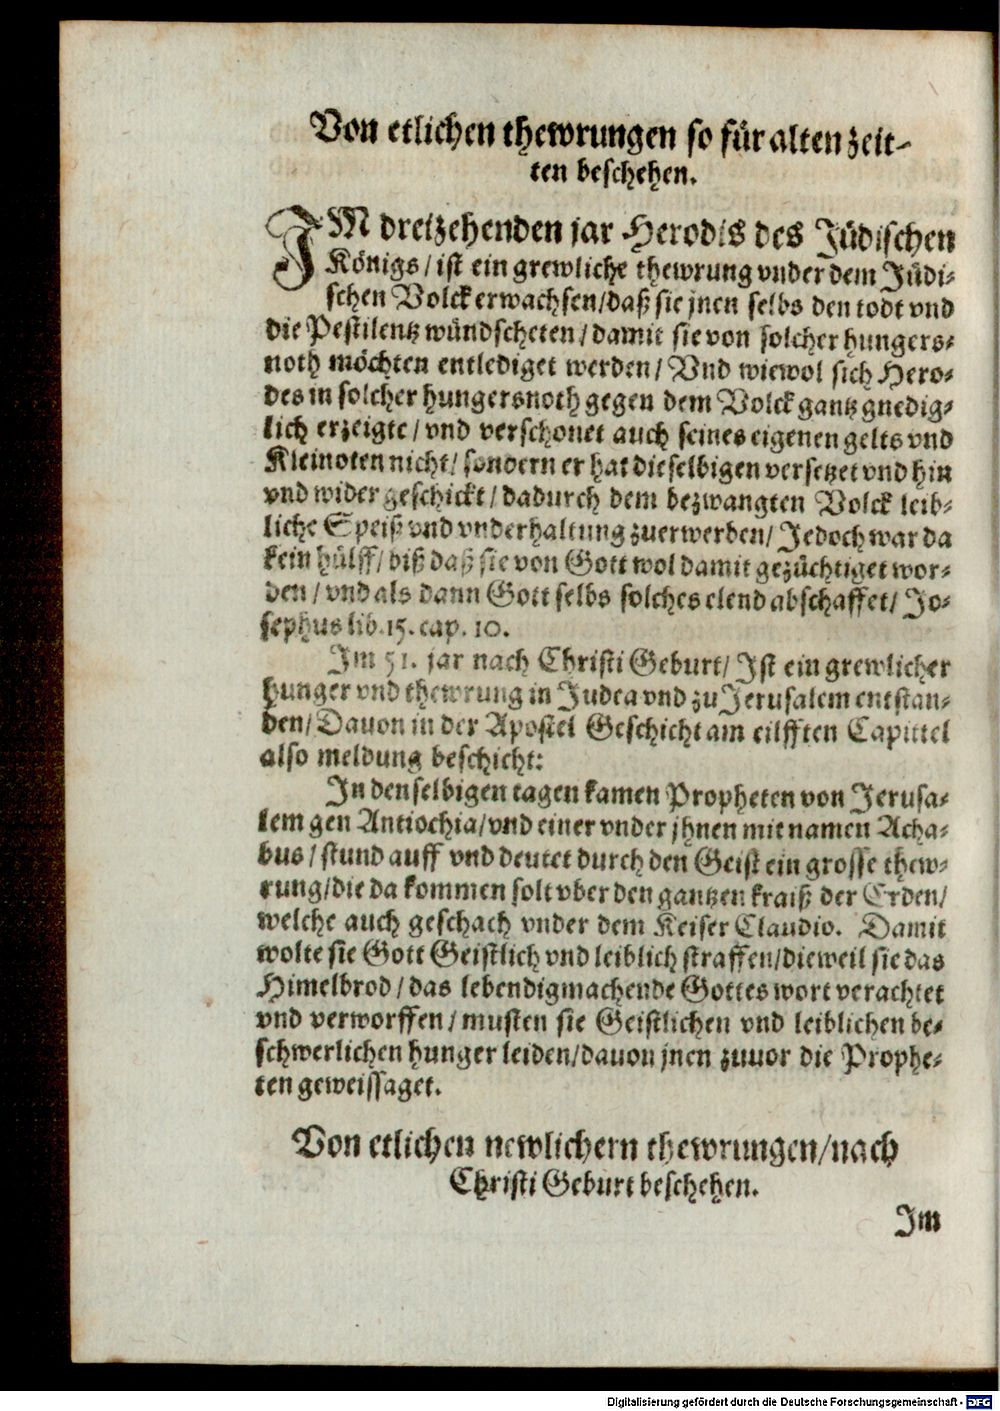 Von etlichen thewrungen so für alten zeit-
ten beschehen.
IM dreizehenden jar Herodis des Jüdischen
Königs/ ist ein grewliche thewrung vnder dem Jüdi-
schen Volck erwachsen/ daß sie jnen selbs den todt vnd
die Pestilentz wündscheten/ damit sie von solcher hungers-
noth möchten entlediget werden/ Vnd wiewol sich Hero-
des in solcher hungersnoth gegen dem Volck gantz gnedig-
lich erzeigte/ vnd verschonet auch seines eigenen gelts vnd
Kleinoten nicht/ sondern er hat dieselbigen versetzet vnd hin
vnd wider geschickt/ dadurch dem bezwangten Volck leib-
liche Speiß vnd vnderhaltung zuerwerden/ Jedoch war da
kein hülff/ biß daß sie von Gott wol damit gezüchtiget wor-
den/ vnd als dann Gott selbs solches elend abschaffet/ Jo-
sephus lib. 15. cap. 10.
Im 51. jar nach Christi Geburt/ Ist ein grewlicher
hunger vnd thewrung in Judea vnd zu Jerusalem entstan-
den/ Dauon in der Apostel Geschicht am eilfften Capittel
also meldung beschicht:
In denselbigen tagen kamen Propheten von Jerusa-
lem gen Antiochia/ vnd einer vnder jhnen mit namen Acha-
bus/ stund auff vnd deutet durch den Geist ein grosse thew-
rung/ die da kommen solt vber den gantzen kraiß der Erden/
welche auch geschach vnder dem Keiser Claudio. Damit
wolte sie Gott Geistlich vnd leiblich straffen/ dieweil sie das
Himelbrod/ das lebendigmachende Gottes wort verachtet
vnd verworffen/ musten sie Geistlichen vnd leiblichen be-
schwerlichen hunger leiden/ dauon jnen zuuor die Prophe-
ten geweissaget.
Von etlichen newlichern thewrungen/ nach
Christi Geburt beschehen.
Im
Digitalisierung gefördert durch die Deutsche Forschungsgemeinschaft - DFG